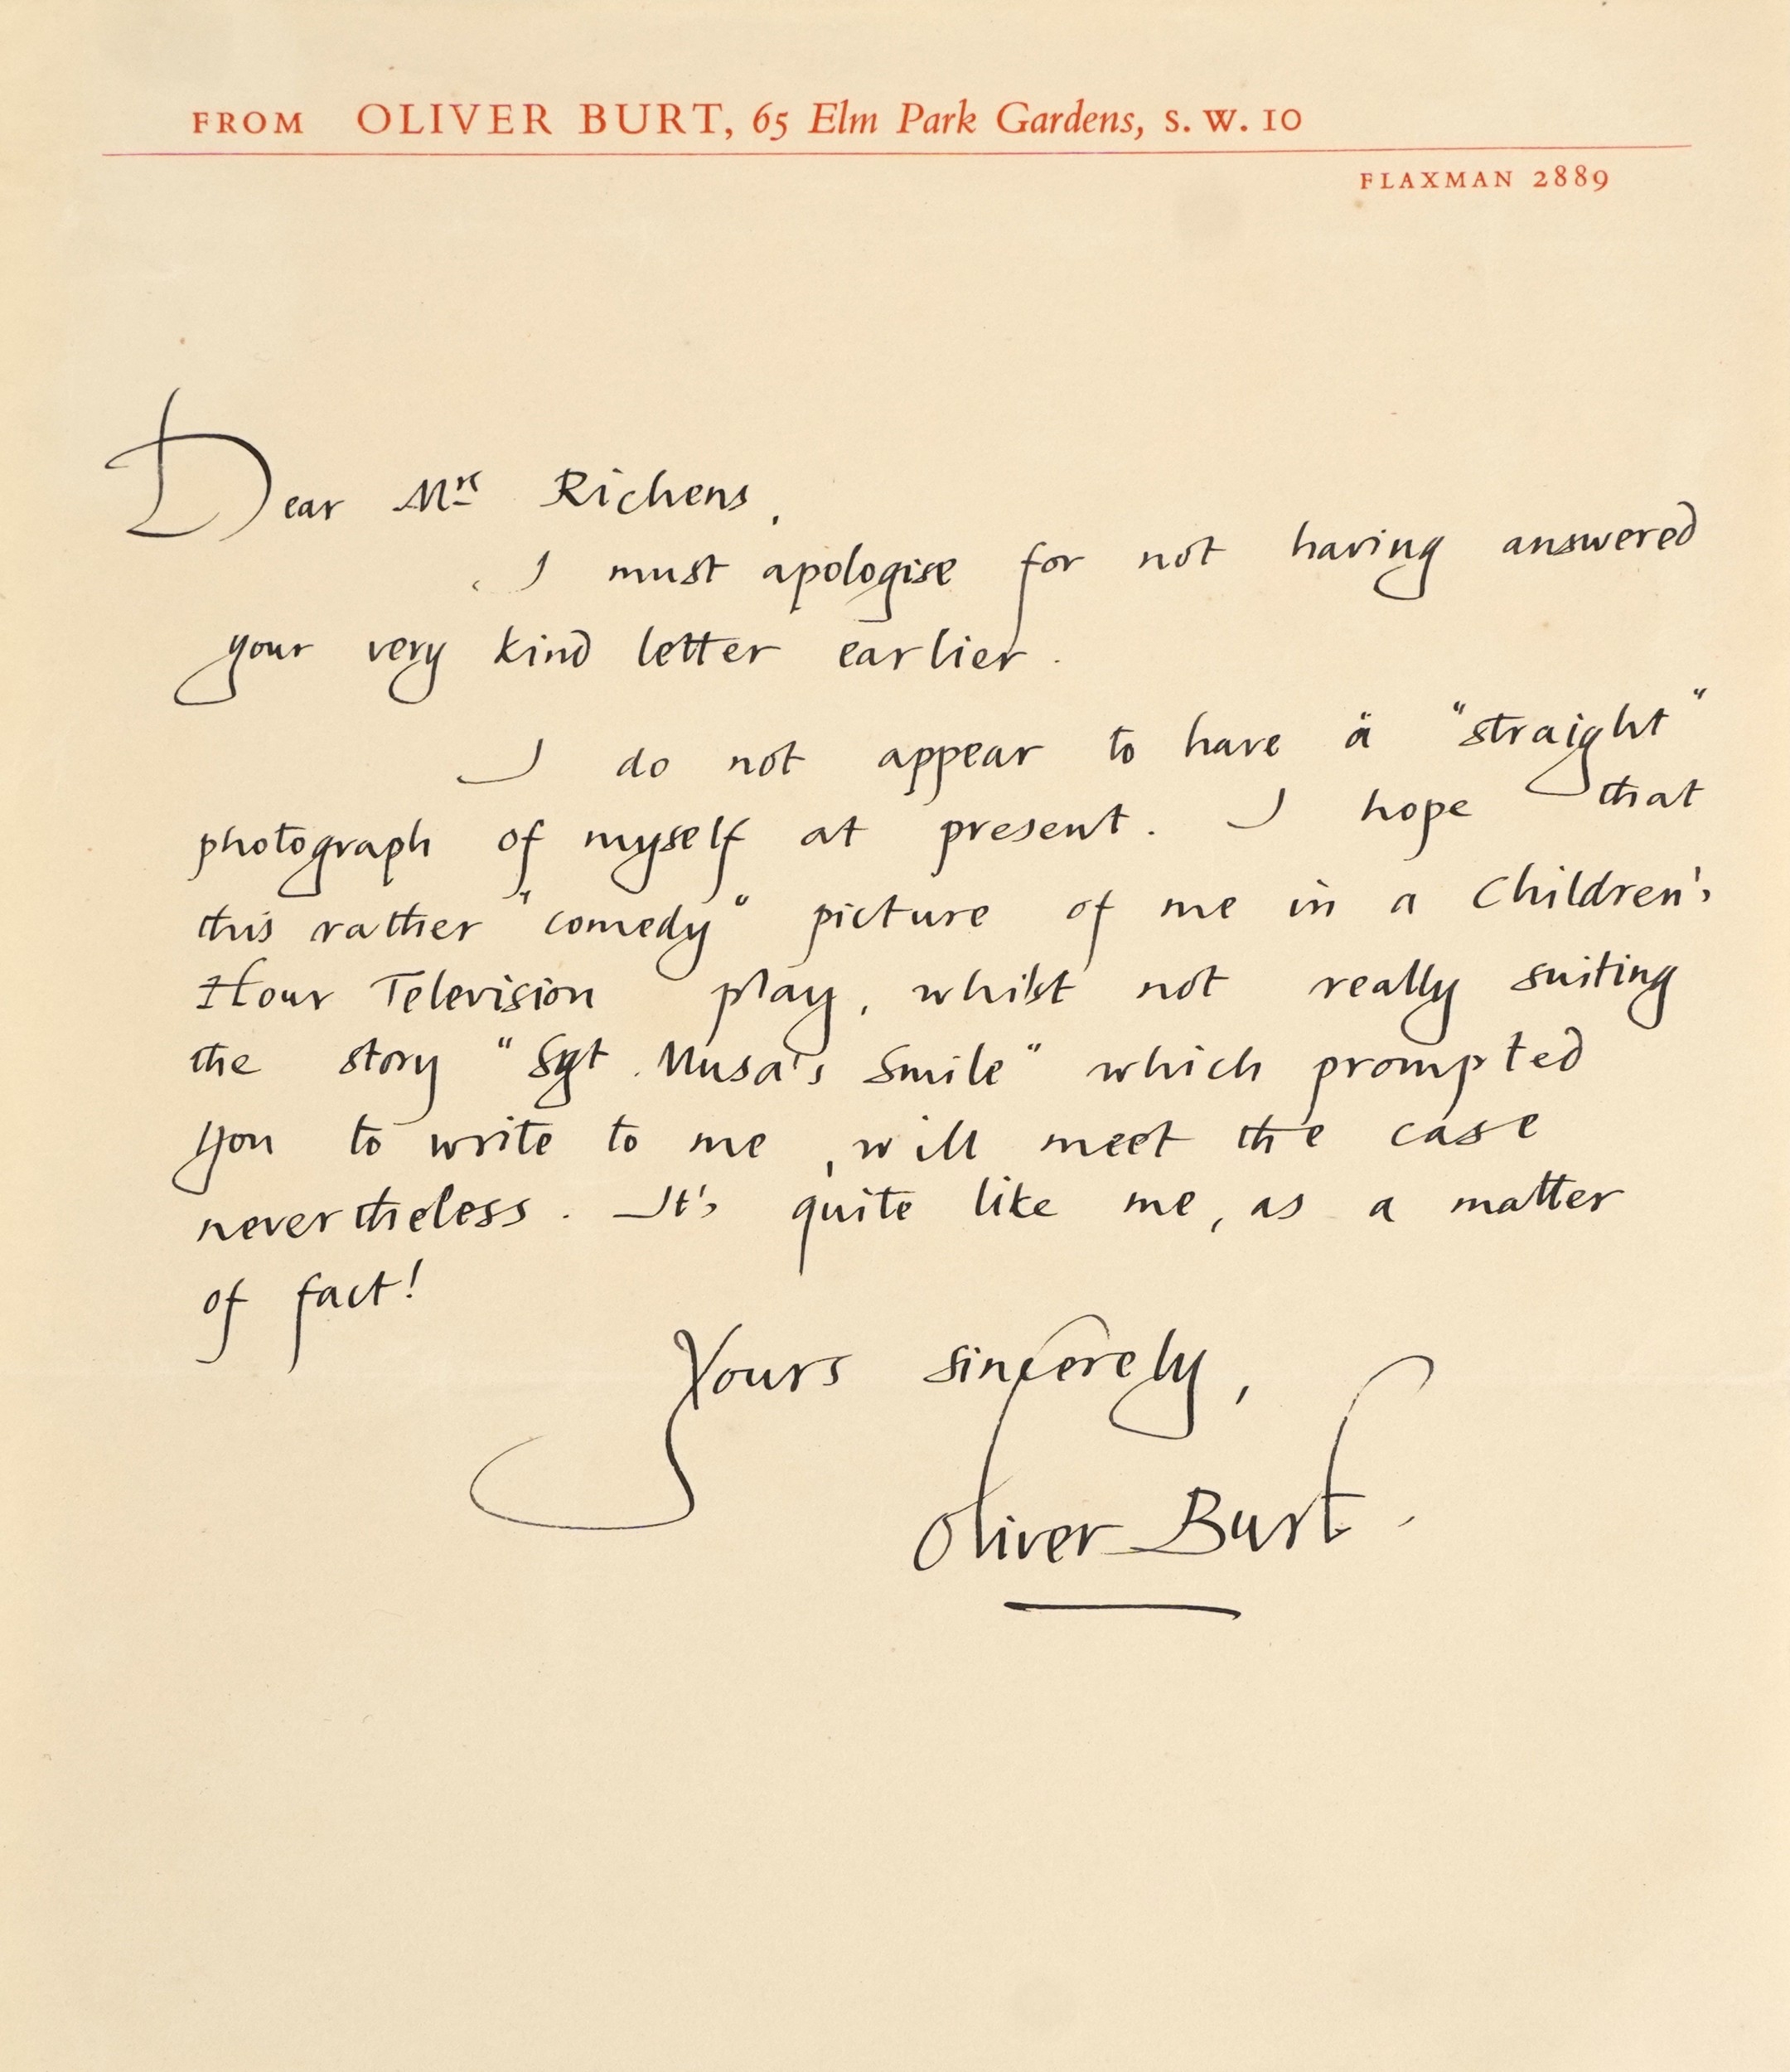 FROM OLIVER BURT, 65 Elm Park Gardens, S.W.10
FLAXMAN 2889
Dear Mr Richens,
I must apologise for not having answered
your very kind letter earlier.
I do not appear to have a "straight"
photograph of myself at present. I hope that
this rather "comedy" picture of me in a Children's
Hour Television play, whilst not really suiting
the story "Sgt. Musa's Smile" which prompted
you to write to me, will meet the case
nevertheless. It's quite like me, as a matter
of fact!
Yours sincerely,
Oliver Burt.